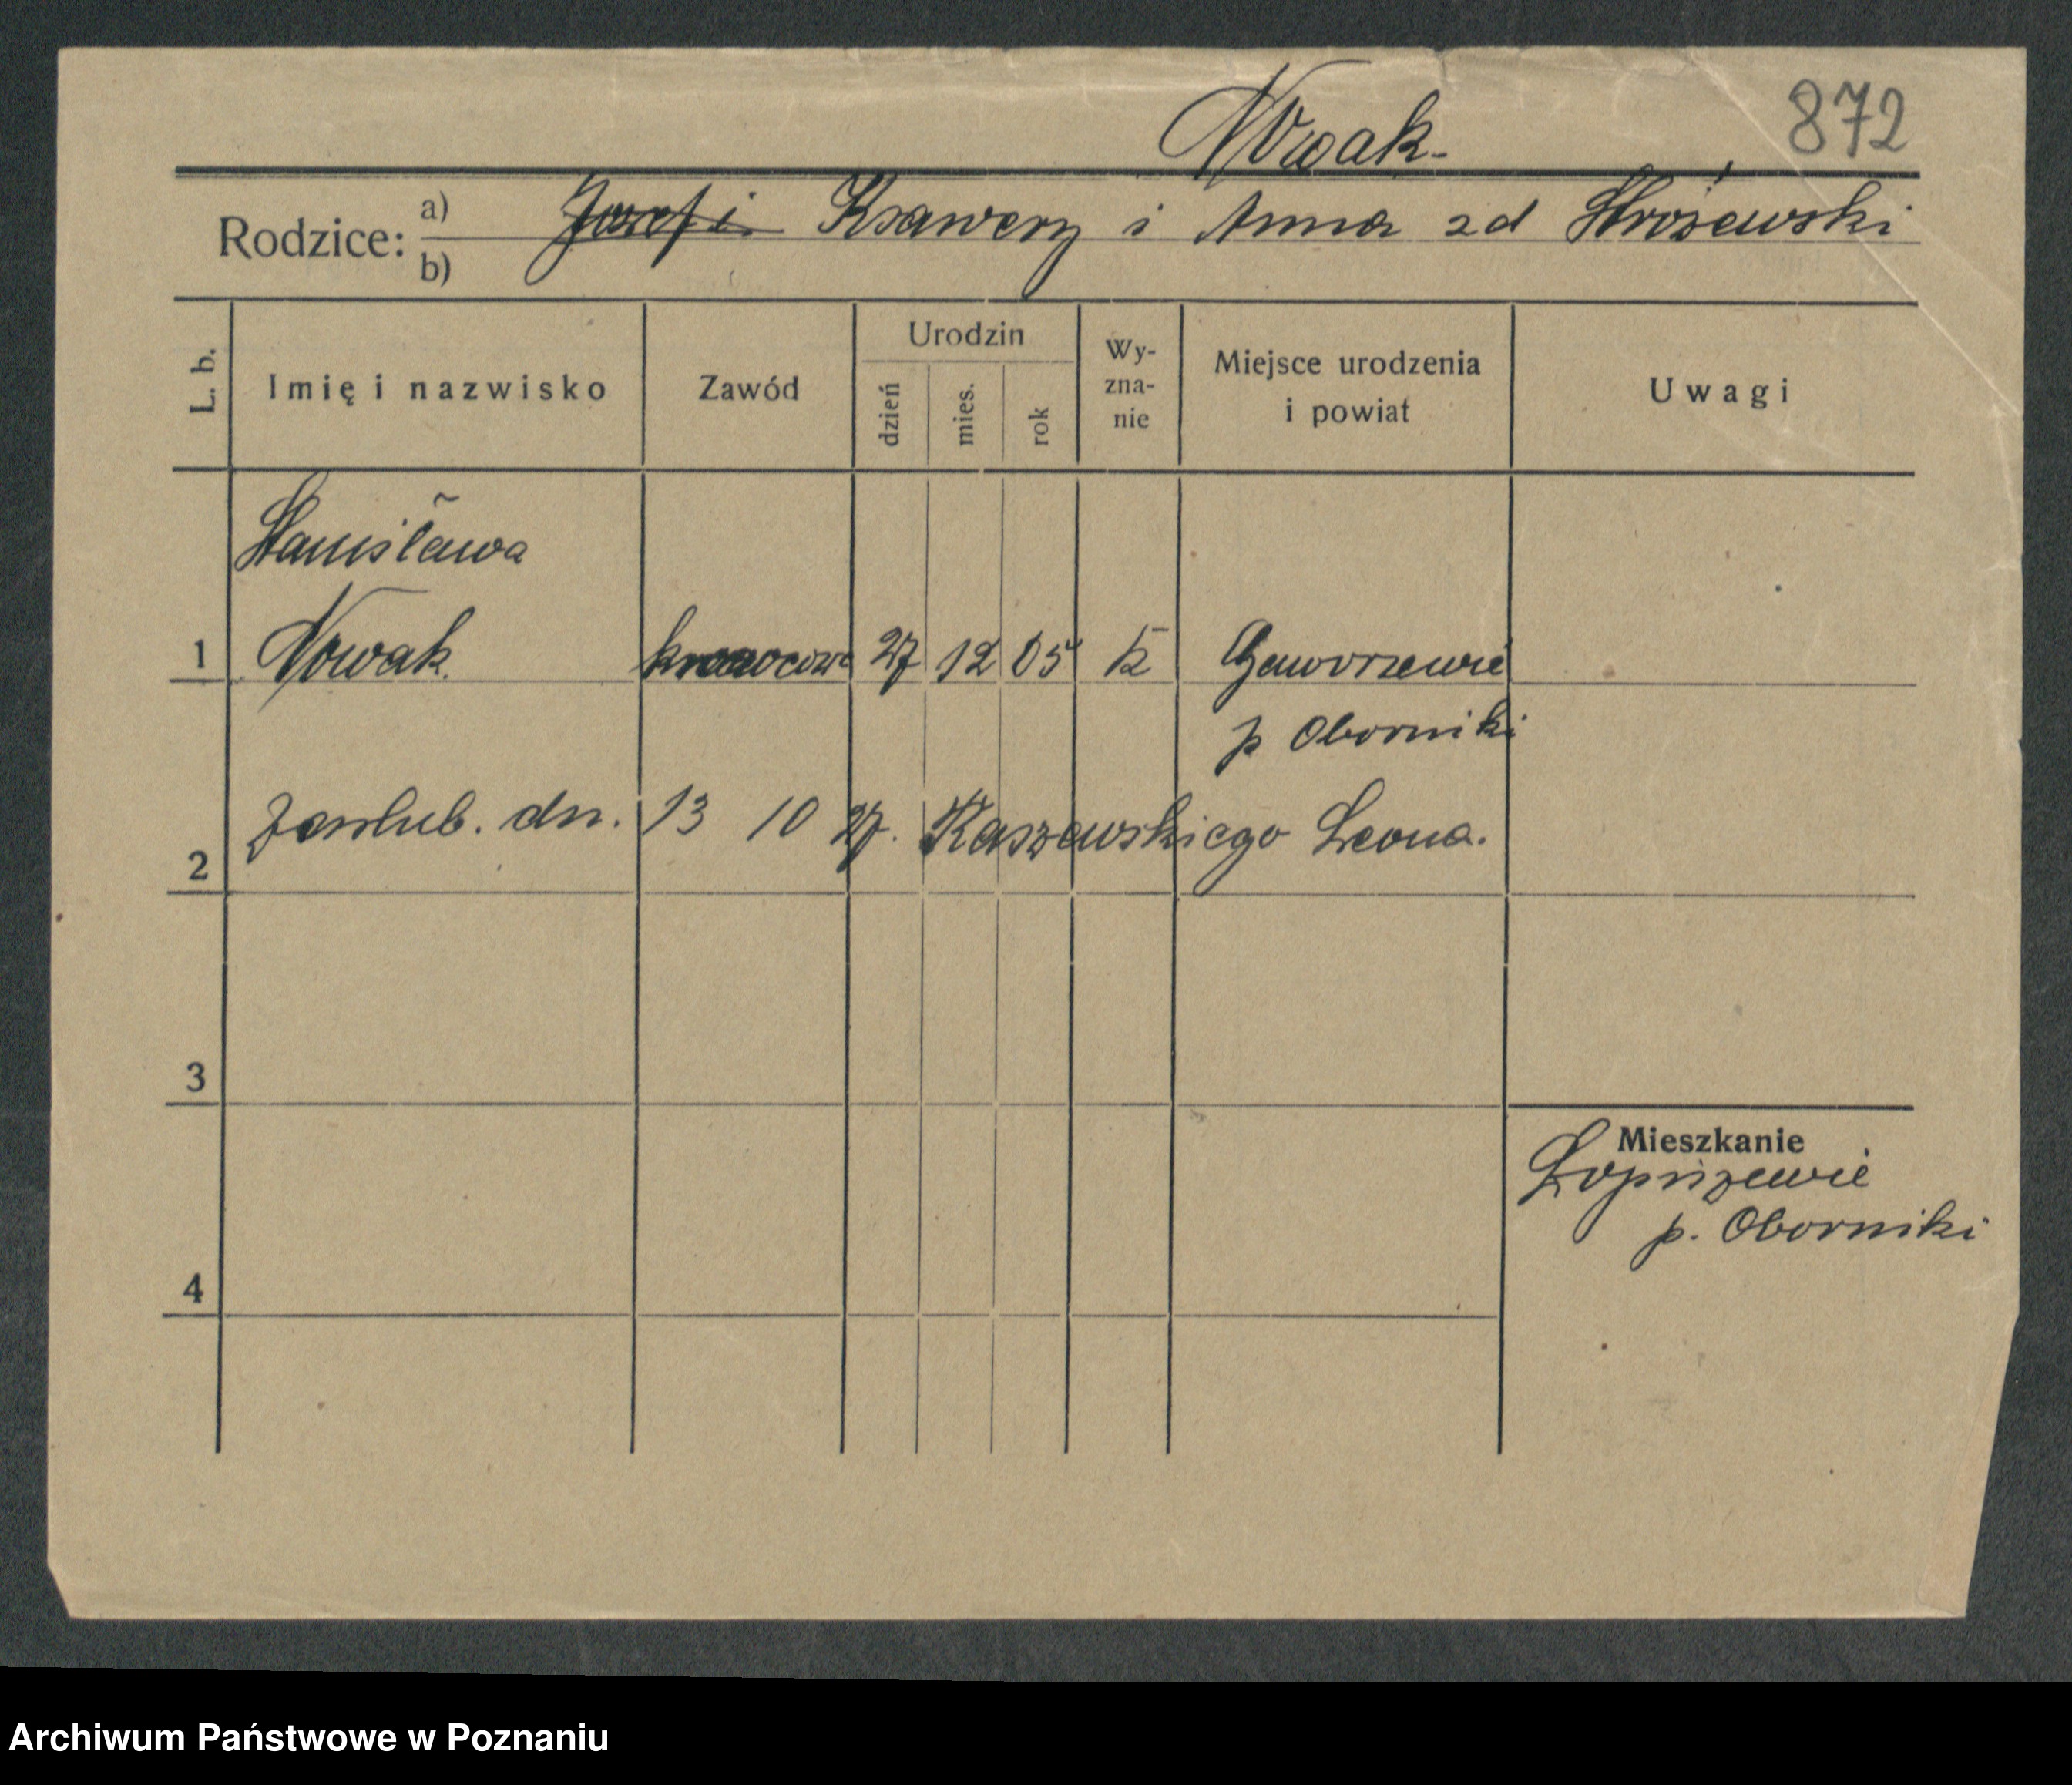 872
Nowak-
Rodzice: a) b) Józef i Ksawery i Anna zd Stróżewski
L. b. Imię i nazwisko Zawód Urodzin dzień mies. rok Wy-zna-nie Miejsce urodzenia i powiat Uwagi
Stanisława
1 Nowak. 27 12 05 k
p Oborniki
2 Zaślub. dn. 13 10 27. Kaszewskiego Leona.
3
Mieszkanie
Łopiszewie
p. Oborniki
4
Archiwum Państwowe w Poznaniu